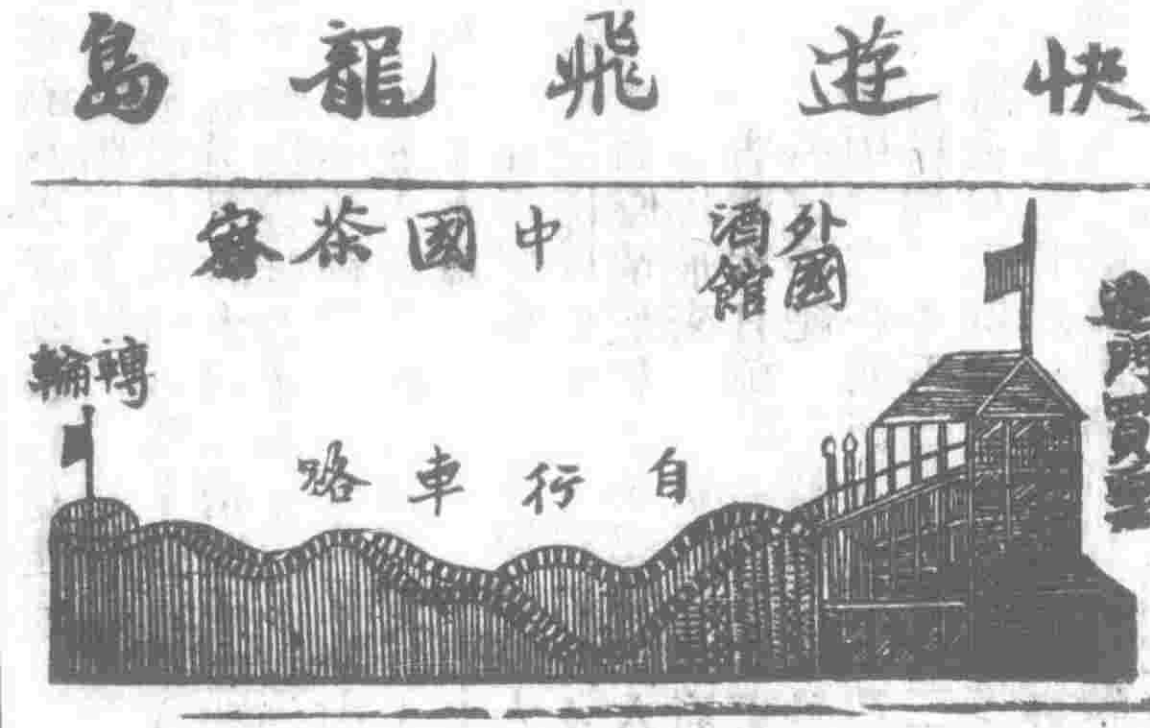 快遊飛龍島
外國
酒館
中國茶寮
轉輪
自行車路
進門買票